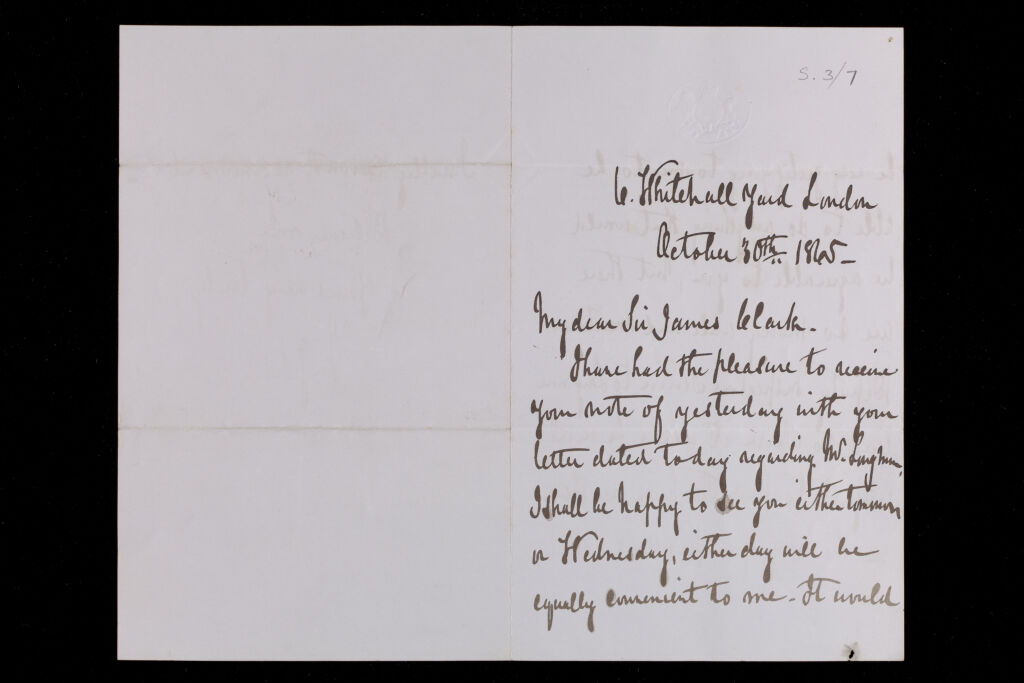 S. 3/7
6. Whitehall Yard London
October 30th 1865-
My dear Sir James Clark.
I have had the pleasure to receive
your note of yesterday with your
letter dated today regarding Mr.
I shall be happy to see you either tomorrow
or Wednesday, either day will be
equally convenient to me - It would